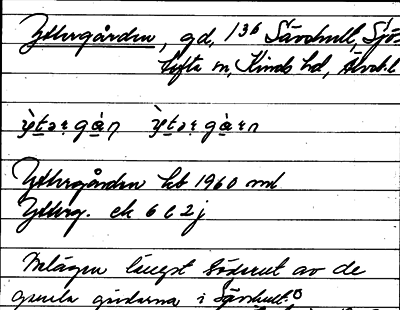 Yttergården, gd, 136 Sävshult, Sjö-
tofta sn, Kinds hd, Älvsb. l
ỳtərgɑ̀n ỳtərgɑ̀rn
Yttergården kb 1960 md
Ytterg. ek 6 e 2 j
Belägen längst söderut av de
gamla gårdarna i Sävshult.